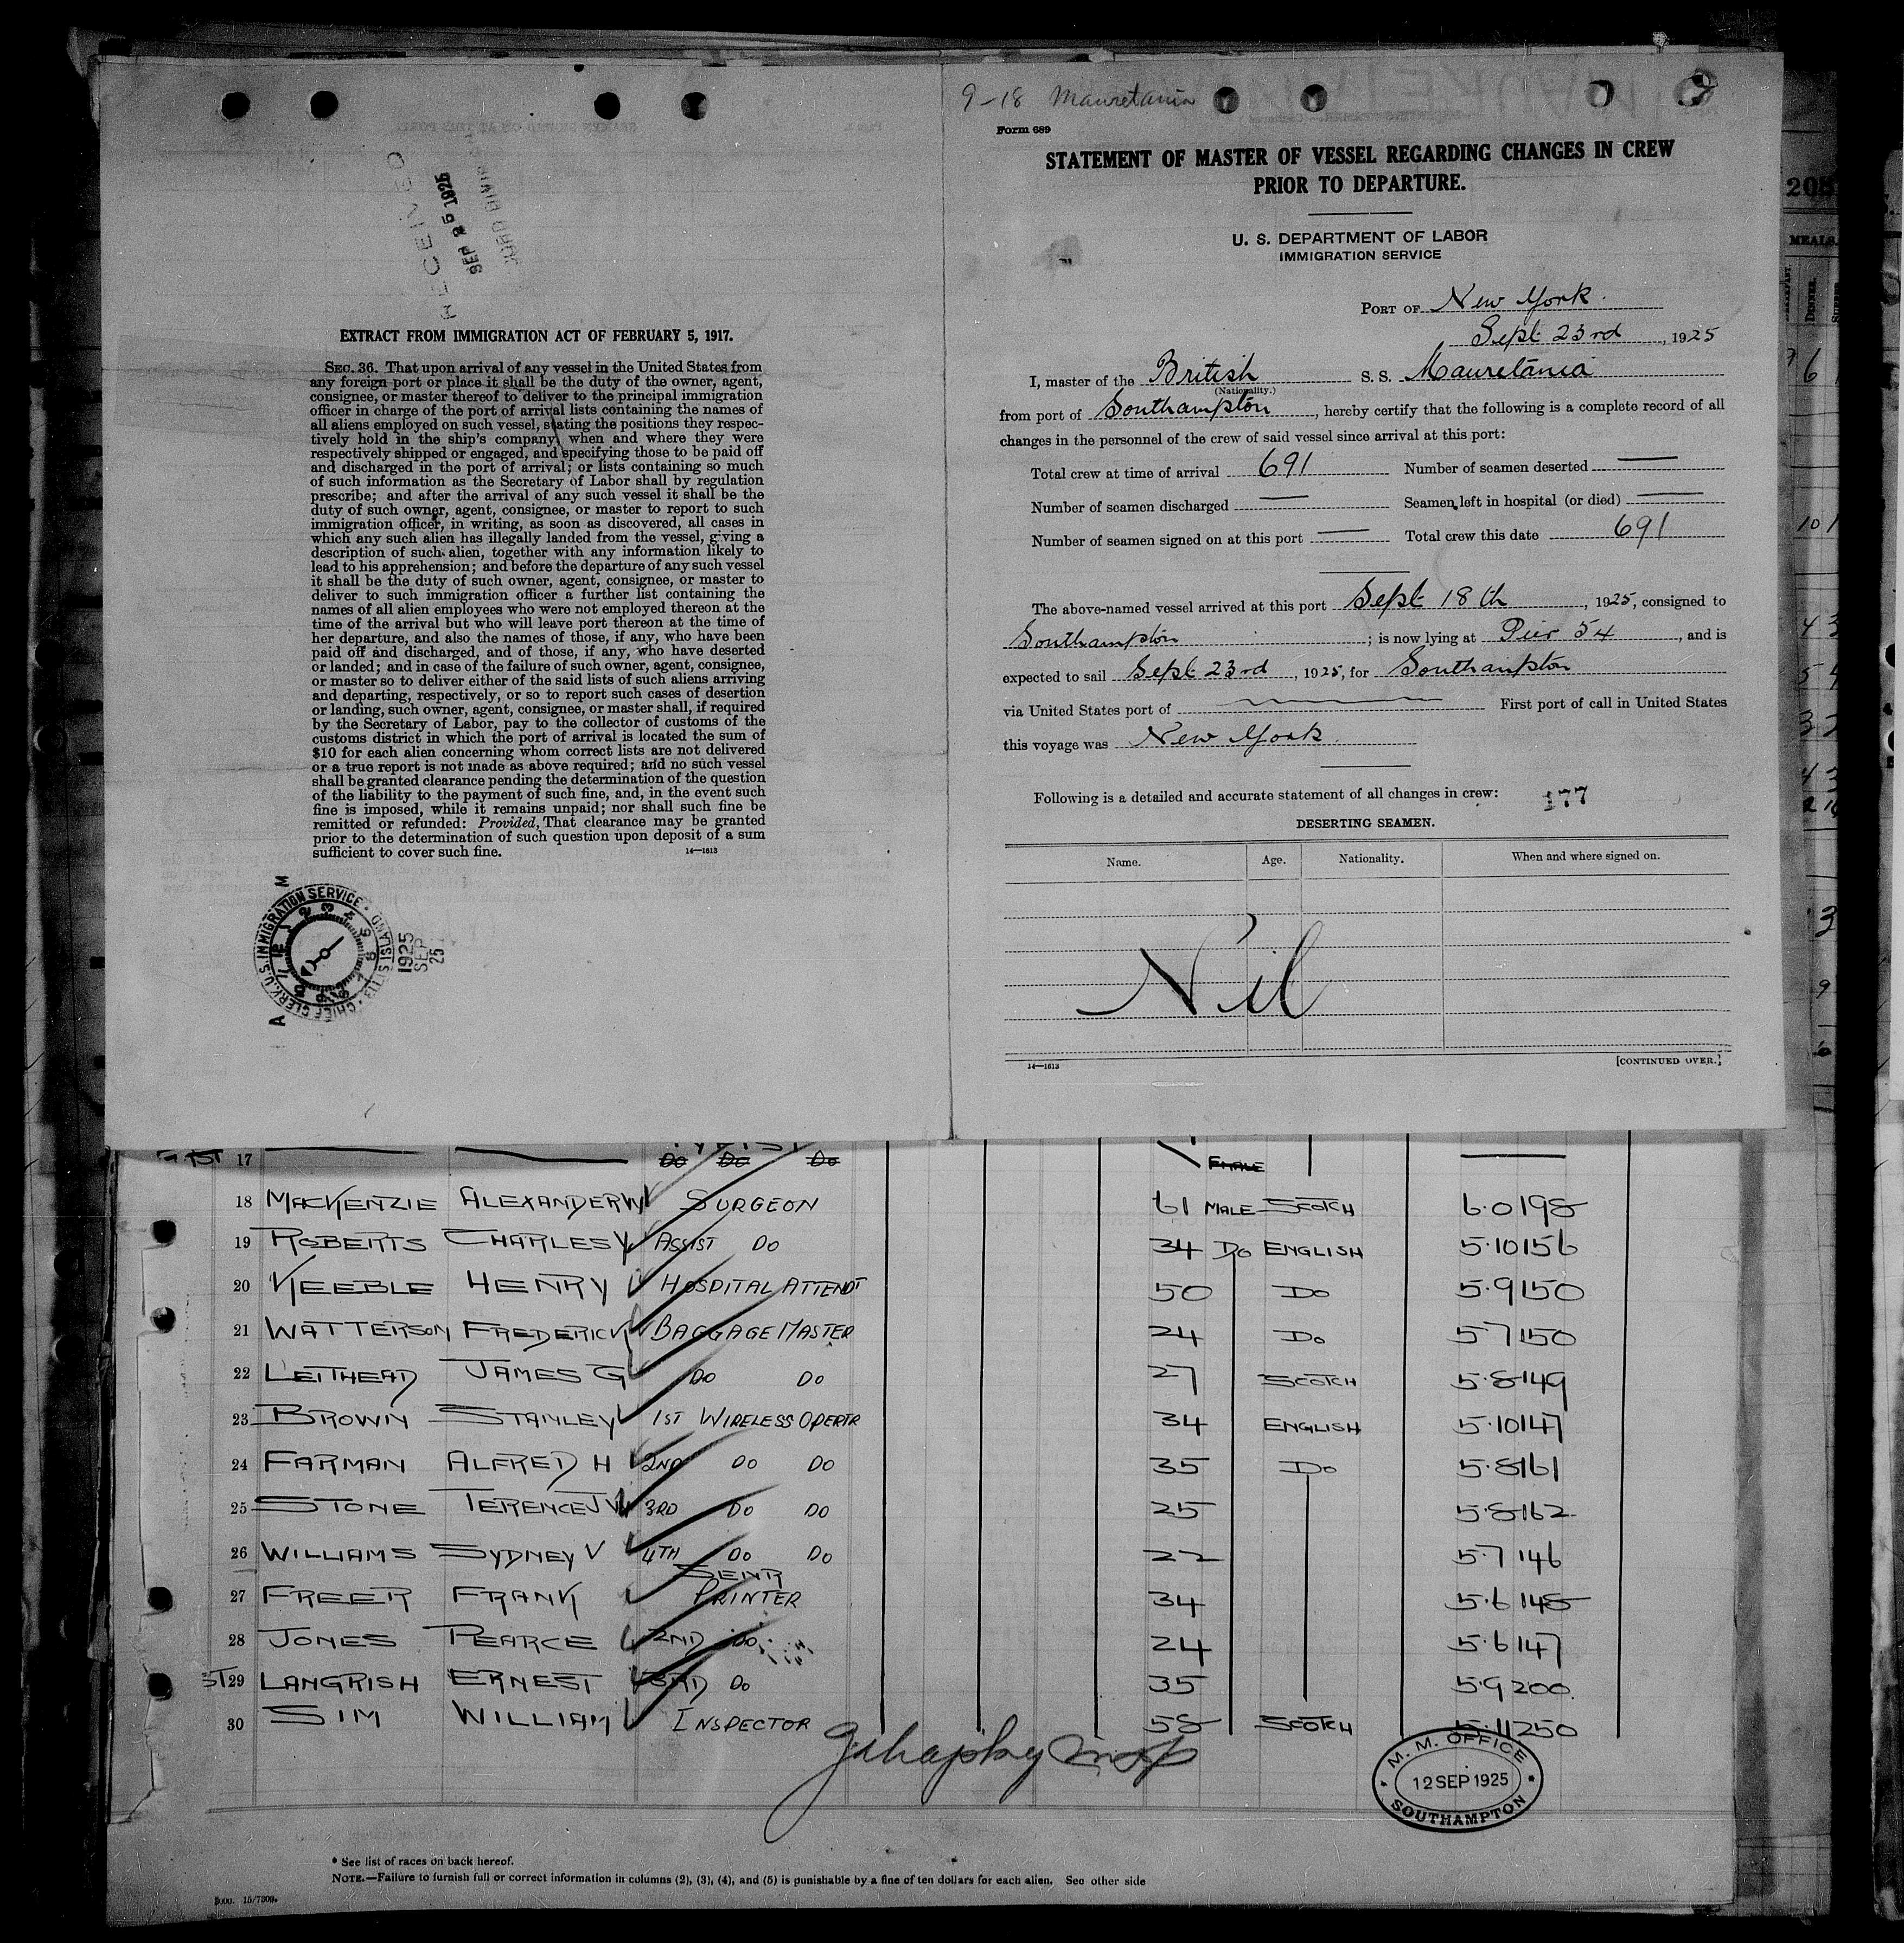 RECEIVED
SEP 25 1925
EXTRACT FROM IMMIGRATION ACT OF FEBRUARY 5, 1917.
SEC. 36. That upon arrival of any vessel in the United States from
any foreign port or place it shall be the duty of the owner, agent,
consignee, or master thereof to deliver to the principal immigration
officer in charge of the port of arrival lists containing the names of
all aliens employed on such vessel, stating the positions they respec-
tively hold in the ship's company, when and where they were
respectively shipped or engaged, and specifying those to be paid off
and discharged in the port of arrival; or lists containing so much
of such information as the Secretary of Labor shall by regulation
prescribe; and after the arrival of any such vessel it shall be the
duty of such owner, agent, consignee, or master to report to such
immigration officer, in writing, as soon as discovered, all cases in
which any such alien has illegally landed from the vessel, giving a
description of such alien, together with any information likely to
lead to his apprehension; and before the departure of any such vessel
it shall be the duty of such owner, agent, consignee, or master to
deliver to such immigration officer a further list containing the
names of all alien employees who were not employed thereon at the
time of the arrival but who will leave port thereon at the time of
her departure, and also the names of those, if any, who have been
paid off and discharged, and of those, if any, who have deserted
or landed; and in case of the failure of such owner, agent, consignee,
or master so to deliver either of the said lists of such aliens arriving
and departing, respectively, or so to report such cases of desertion
or landing, such owner, agent, consignee, or master shall, if required
by the Secretary of Labor, pay to the collector of customs of the
customs district in which the port of arrival is located the sum of
$10 for each alien concerning whom correct lists are not delivered
or a true report is not made as above required; and no such vessel
shall be granted clearance pending the determination of the question
of the liability to the payment of such fine, and, in the event such
fine is imposed, while it remains unpaid; nor shall such fine be
remitted or refunded: Provided, That clearance may be granted
prior to the determination of such question upon deposit of a sum
sufficient to cover such fine. 14—1613
CHIEF CLERK, U.S. IMMIGRATION SERVICE · ELLIS ISLAND
1925
SEP
25
9-18 Mauretania
Form 689
STATEMENT OF MASTER OF VESSEL REGARDING CHANGES IN CREW
PRIOR TO DEPARTURE.
U. S. DEPARTMENT OF LABOR
IMMIGRATION SERVICE
PORT OF New York.
Sept 23rd, 1925
I, master of the British S. S. Mauretania
(Nationality.)
from port of Southampton, hereby certify that the following is a complete record of all
changes in the personnel of the crew of said vessel since arrival at this port:
Total crew at time of arrival 691 Number of seamen deserted —
Number of seamen discharged — Seamen left in hospital (or died) —
Number of seamen signed on at this port — Total crew this date 691
The above-named vessel arrived at this port Sept 18th, 1925, consigned to
Southampton; is now lying at Pier 54, and is
expected to sail Sept 23rd, 1925, for Southampton
via United States port of First port of call in United States
this voyage was New York.
Following is a detailed and accurate statement of all changes in crew: 177
DESERTING SEAMEN.
Name. Age. Nationality. When and where signed on.
Nil
14—1613 [CONTINUED OVER.]
MEALS.
DINNER.
17 Do Do Do
18 MACKENZIE ALEXANDER W SURGEON 61 MALE SCOTCH 6.0 198
19 ROBERTS CHARLES V ASSIST DO 34 DO ENGLISH 5.10 156
20 KEEBLE HENRY HOSPITAL ATTENDT 50 DO 5.9 150
21 WATTERSON FREDERICK BAGGAGE MASTER 24 DO 5 7 150
22 LEITHEAD JAMES G DO DO 27 SCOTCH 5.8 149
23 BROWN STANLEY 1ST WIRELESS OPERTR 34 ENGLISH 5.10 147
24 FARMAN ALFRED H 2ND DO DO 35 DO 5.8 161
25 STONE TERENCE J W 3RD DO DO 25 5.8 162
26 WILLIAMS SYDNEY V 4TH DO DO 22 5.7 146
27 FREER FRANK SENR PRINTER 34 5.6 148
28 JONES PEARCE 2ND DO 24 5.6 147
29 LANGRISH ERNEST 3RD DO 35 5.9 200
30 SIM WILLIAM INSPECTOR 58 SCOTCH 5.11 250
M. M. OFFICE
12 SEP 1925
SOUTHAMPTON
* See list of races on back hereof.
NOTE.—Failure to furnish full or correct information in columns (2), (3), (4), and (5) is punishable by a fine of ten dollars for each alien. See other side